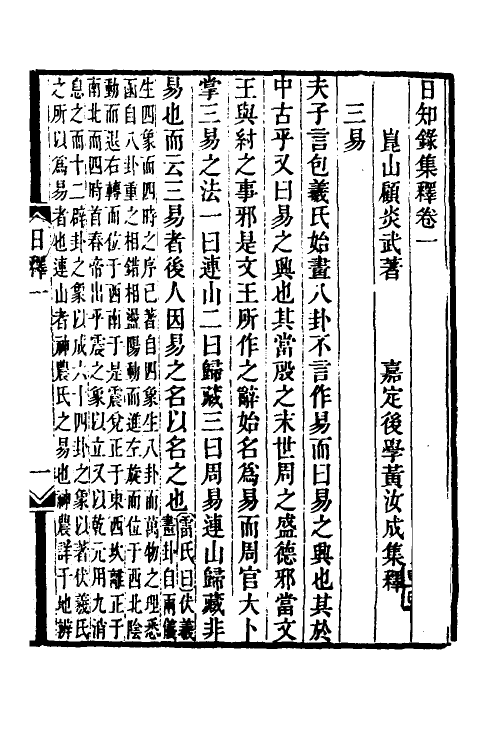 日知錄集釋卷一
崑山顧炎武著　嘉定後學黃汝成集釋
三易
夫子言包羲氏始畫八卦不言作易而曰易之興也其於
中古乎又曰易之興也其當殷之末世周之盛德邪當文
王與紂之事邪是文王所作之辭始名爲易而周官大卜
掌三易之法一曰連山二曰歸藏三曰周易連山歸藏非
易也而云三易者後人因易之名以名之也雷氏曰伏羲
畫卦自兩儀
生四象而四時之序已著自四象生八卦而萬物之理悉
函自八卦重之相錯相盪陽動而進左旋而位于西北陰
動而退右轉而位于西南于是震兌正于東西坎離正于
南北而四時首春帝出乎震之象以立又以乾元用九消
息之而十二辟卦之象以成六十四卦之象以著伏羲氏
之所以爲易者也連山者神農氏之易也神農詳于地辨
日釋一
一